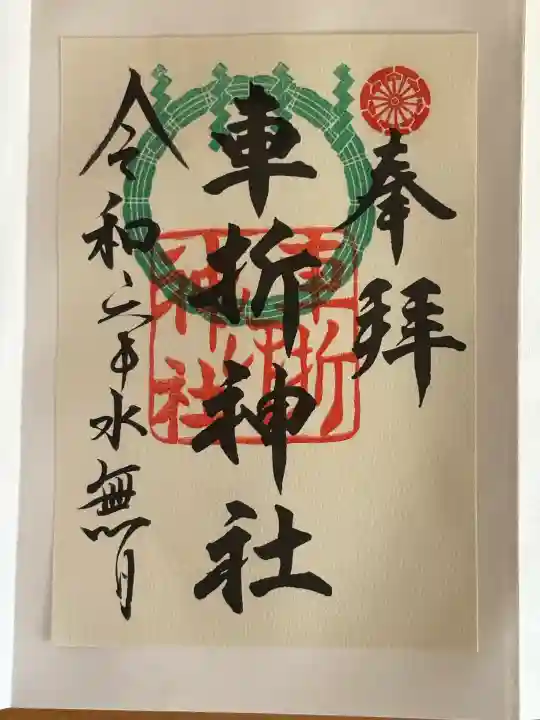 奉拝
車折神社
令和六年水無月
車折神社